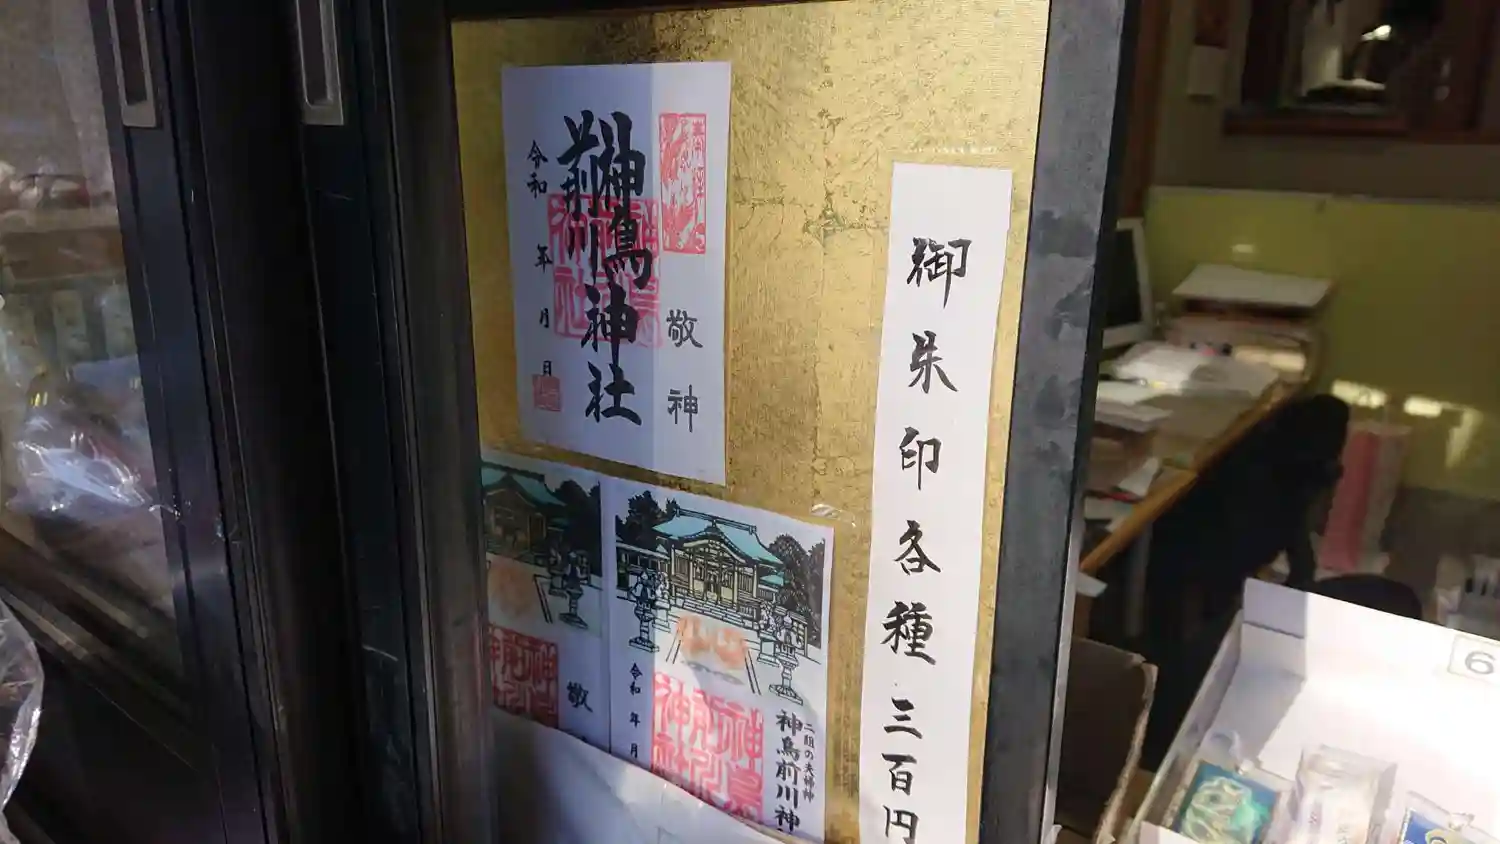 御朱印各種 三百円
敬神
神鳥前川神社
令和 年 月 日
敬
二組の夫婦神
神鳥前川神
令和 年 月
6